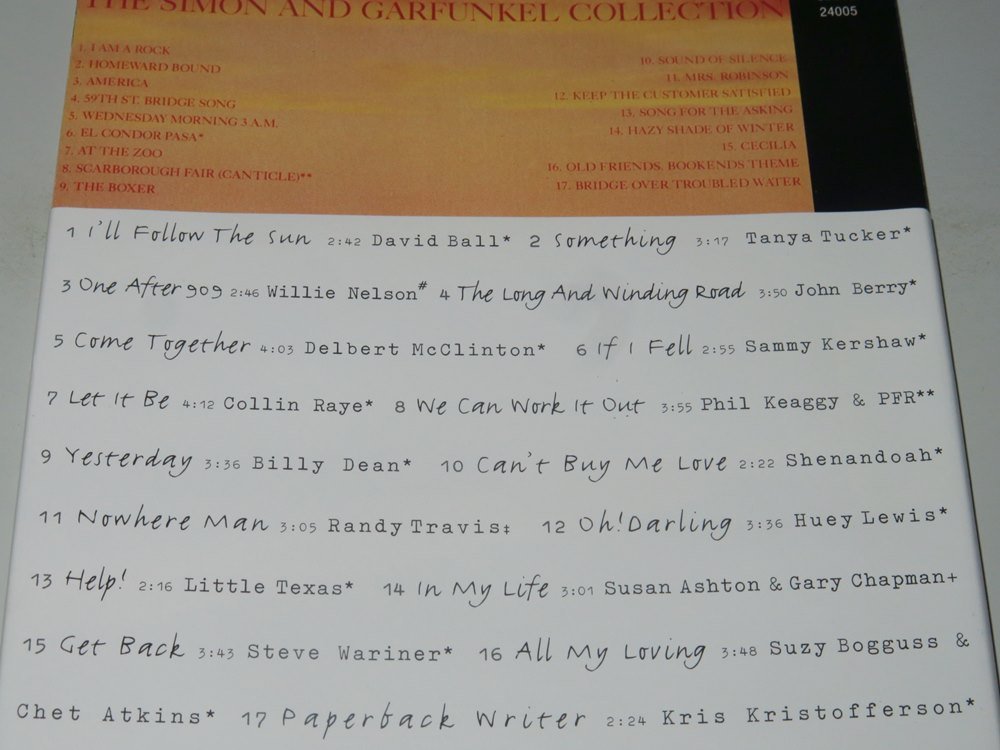 THE SIMON AND GARFUNKEL COLLECTION
24005
1. I AM A ROCK
2. HOMEWARD BOUND
3. AMERICA
4. 59TH ST. BRIDGE SONG
5. WEDNESDAY MORNING 3 A.M.
6. EL CONDOR PASA*
7. AT THE ZOO
8. SCARBOROUGH FAIR (CANTICLE)**
9. THE BOXER
10. SOUND OF SILENCE
11. MRS. ROBINSON
12. KEEP THE CUSTOMER SATISFIED
13. SONG FOR THE ASKING
14. HAZY SHADE OF WINTER
15. CECILIA
16. OLD FRIENDS. BOOKENDS THEME
17. BRIDGE OVER TROUBLED WATER
1 I'll Follow The Sun 2:42 David Ball* 2 Something 3:17 Tanya Tucker*
3 One After 909 2:46 Willie Nelson# 4 The Long And Winding Road 3:50 John Berry*
5 Come Together 4:03 Delbert McClinton* 6 If I Fell 2:55 Sammy Kershaw*
7 Let It Be 4:12 Collin Raye* 8 We Can Work It Out 3:55 Phil Keaggy & PFR**
9 Yesterday 3:36 Billy Dean* 10 Can't Buy Me Love 2:22 Shenandoah*
11 Nowhere Man 3:05 Randy Travis‡ 12 Oh! Darling 3:36 Huey Lewis*
13 Help! 2:16 Little Texas* 14 In My Life 3:01 Susan Ashton & Gary Chapman+
15 Get Back 3:43 Steve Wariner* 16 All My Loving 3:48 Suzy Bogguss &
Chet Atkins* 17 Paperback Writer 2:24 Kris Kristofferson*